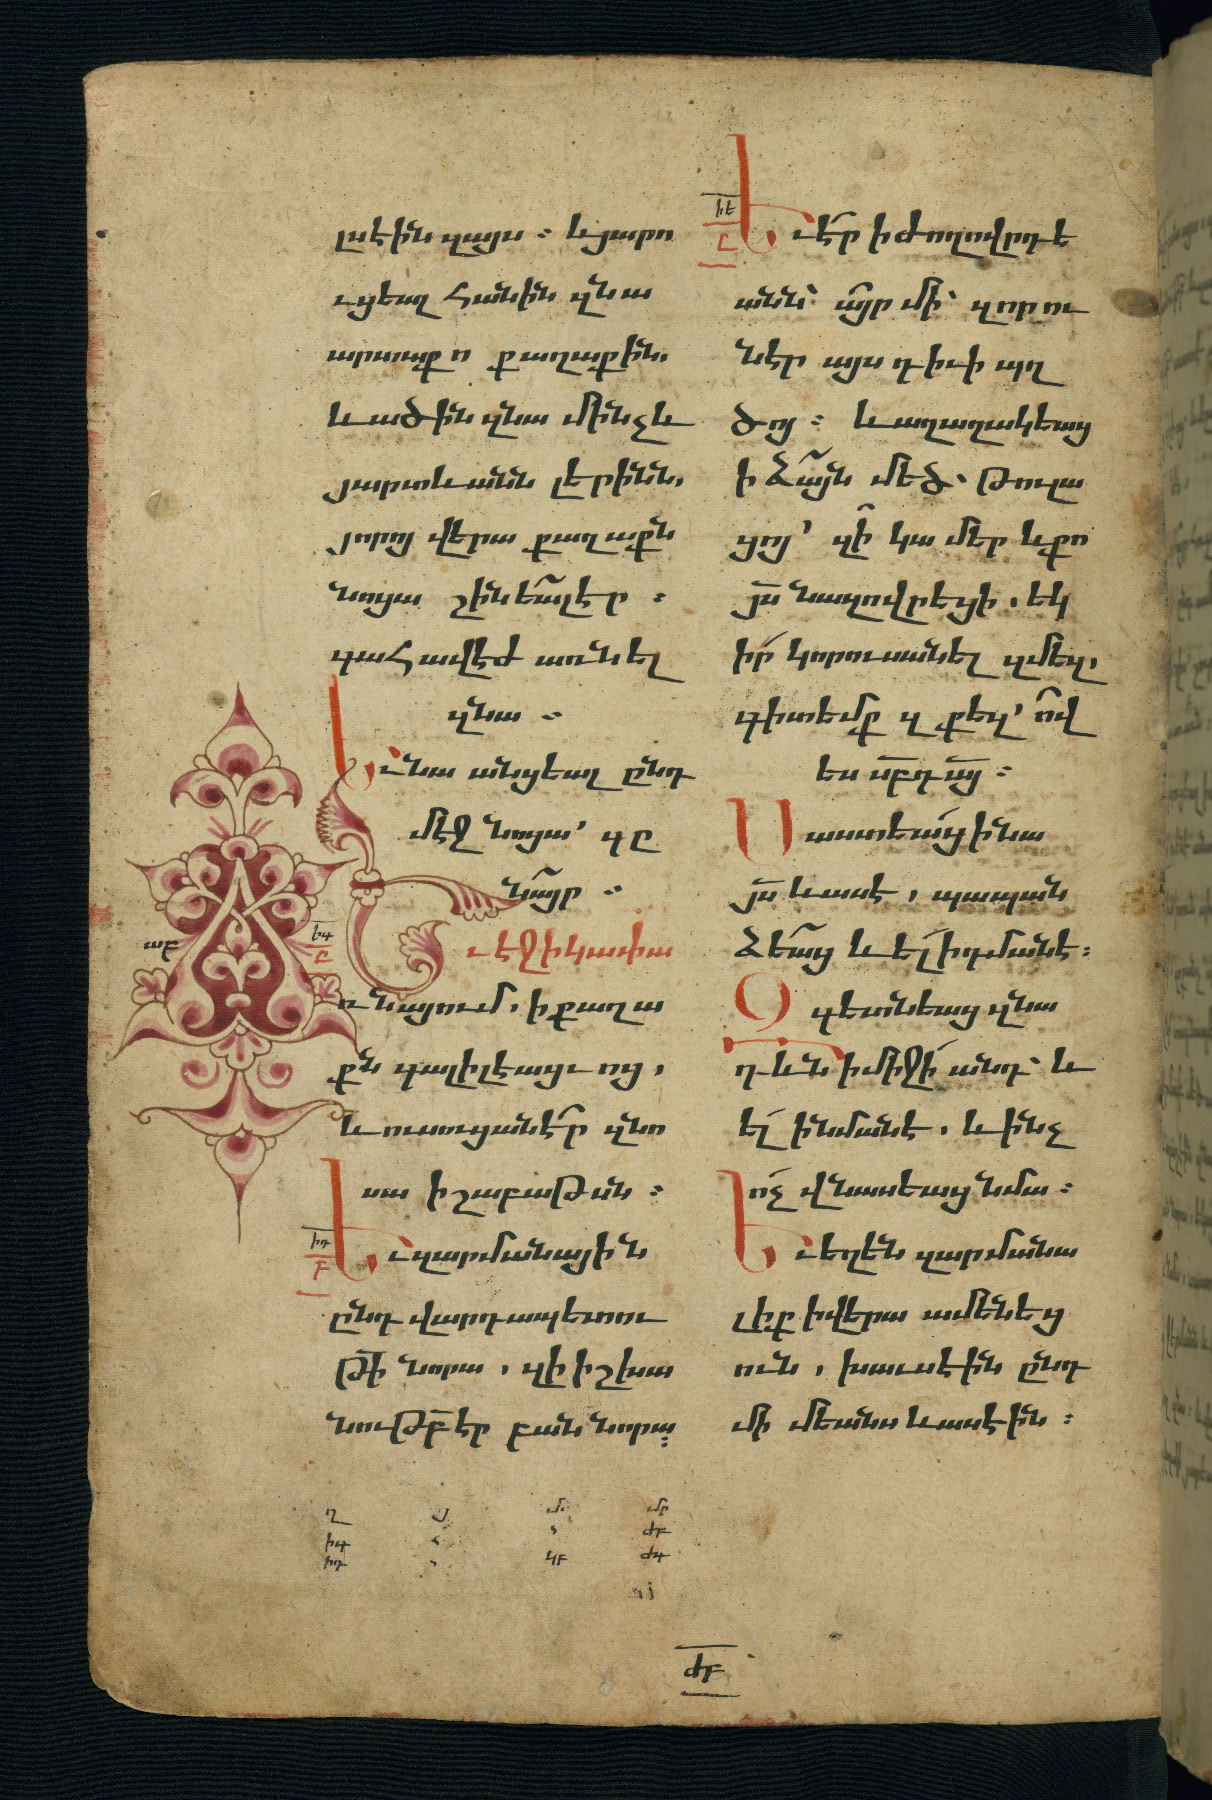 լսէին զայս : և յարու
ցեալ հանին զնա
արտաքո քաղաքին.
և ածին զնա մինչև
յարտևանն լերինն,
յորոյ վերա քաղաքն
նոցա շինեա՟լ էր :
գահավէժ առնել
զնա :
Եւ նա անցեալ ընդ
մէջ նոցա՝ գը
նա՟յր :
աբ
իգ
Ը
Եւ էջ ի կափառ
ունայում. ի քաղա
քն գալիլէացւոց,
և ուսուցանէ՟ր զնո
սա ի շաբաթսն :
իդ
Բ
Եւ զարմանային
ընդ վարդապետու
թի՟ նորա, զի իշխա
նութբ՟ էր բան նորա :
իե
Ը
Եւ է՟ր ի ժողովրդե
անն՝ ա՟յր մի՝ զոր ու
նէր այս դիւի պղ
ծոյ : և աղաղակեաց
ի ձա՟յն մեծ՝ թուլա
ցոյ՝ զի՟ կա մեր և քո
յս՟ նազովրեցի, եկ
իր կորուսանել զմեզ,
գիտեմք զքեզ՝ ո՟վ
ես սբ՟դ ա՟յ :
Սաստեա՟ց ի նա
յս՟ և ասէ, պապան
ձեա՟ց և ել ի դմանէ :
Զգետնեաց զնա
դևն ի միջի անդ՝ և
ել ի նմանէ, և ինչ
ոչ վնասեաց նմա :
Եւ եղեն զարմանա
լիք ի վերա ամենեց
ուն, խաւսէին ընդ
մի մեանս և ասէին :
ժբ